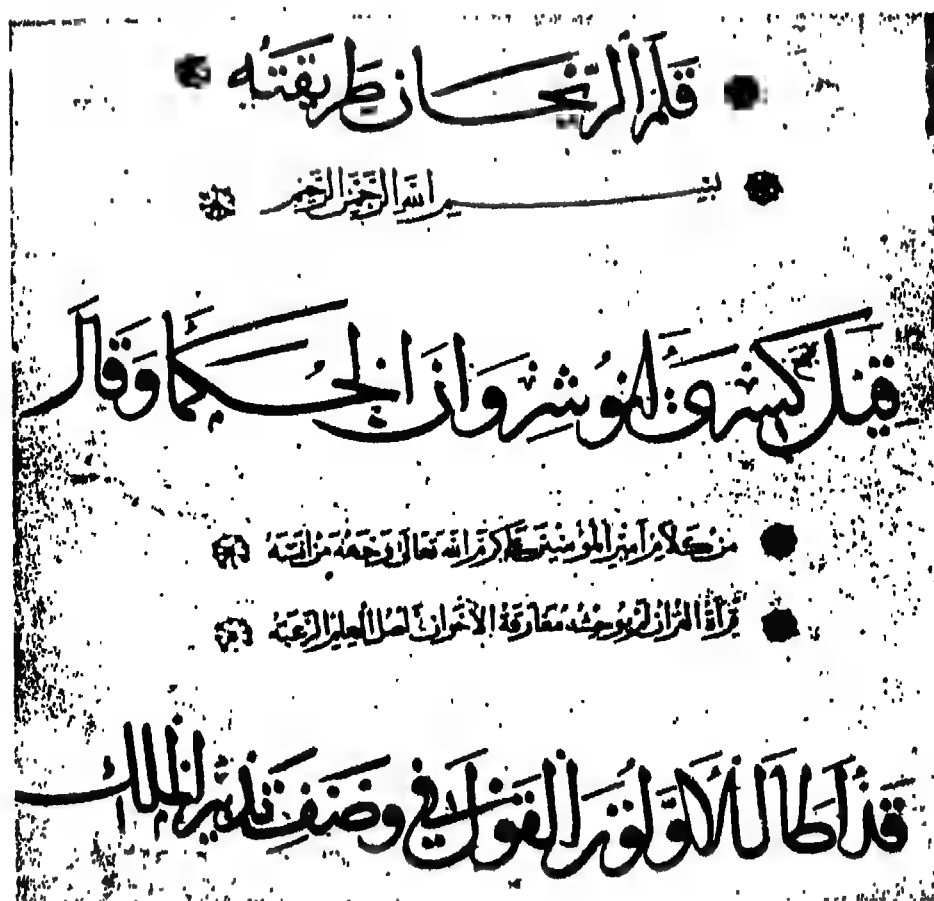 قلم الريحان طريقته
بسم الله الرحمن الرحيم
قيل كسرى انوشروان الحكما وقال
من كلام امير المؤمنين علي كرم الله تعالى وجهه من انسته
قراة القران لم يوحشه مفارقة الاخوان اصل العلم الرغبة
قد اطال الاولون القول في وصف تدبير الملك